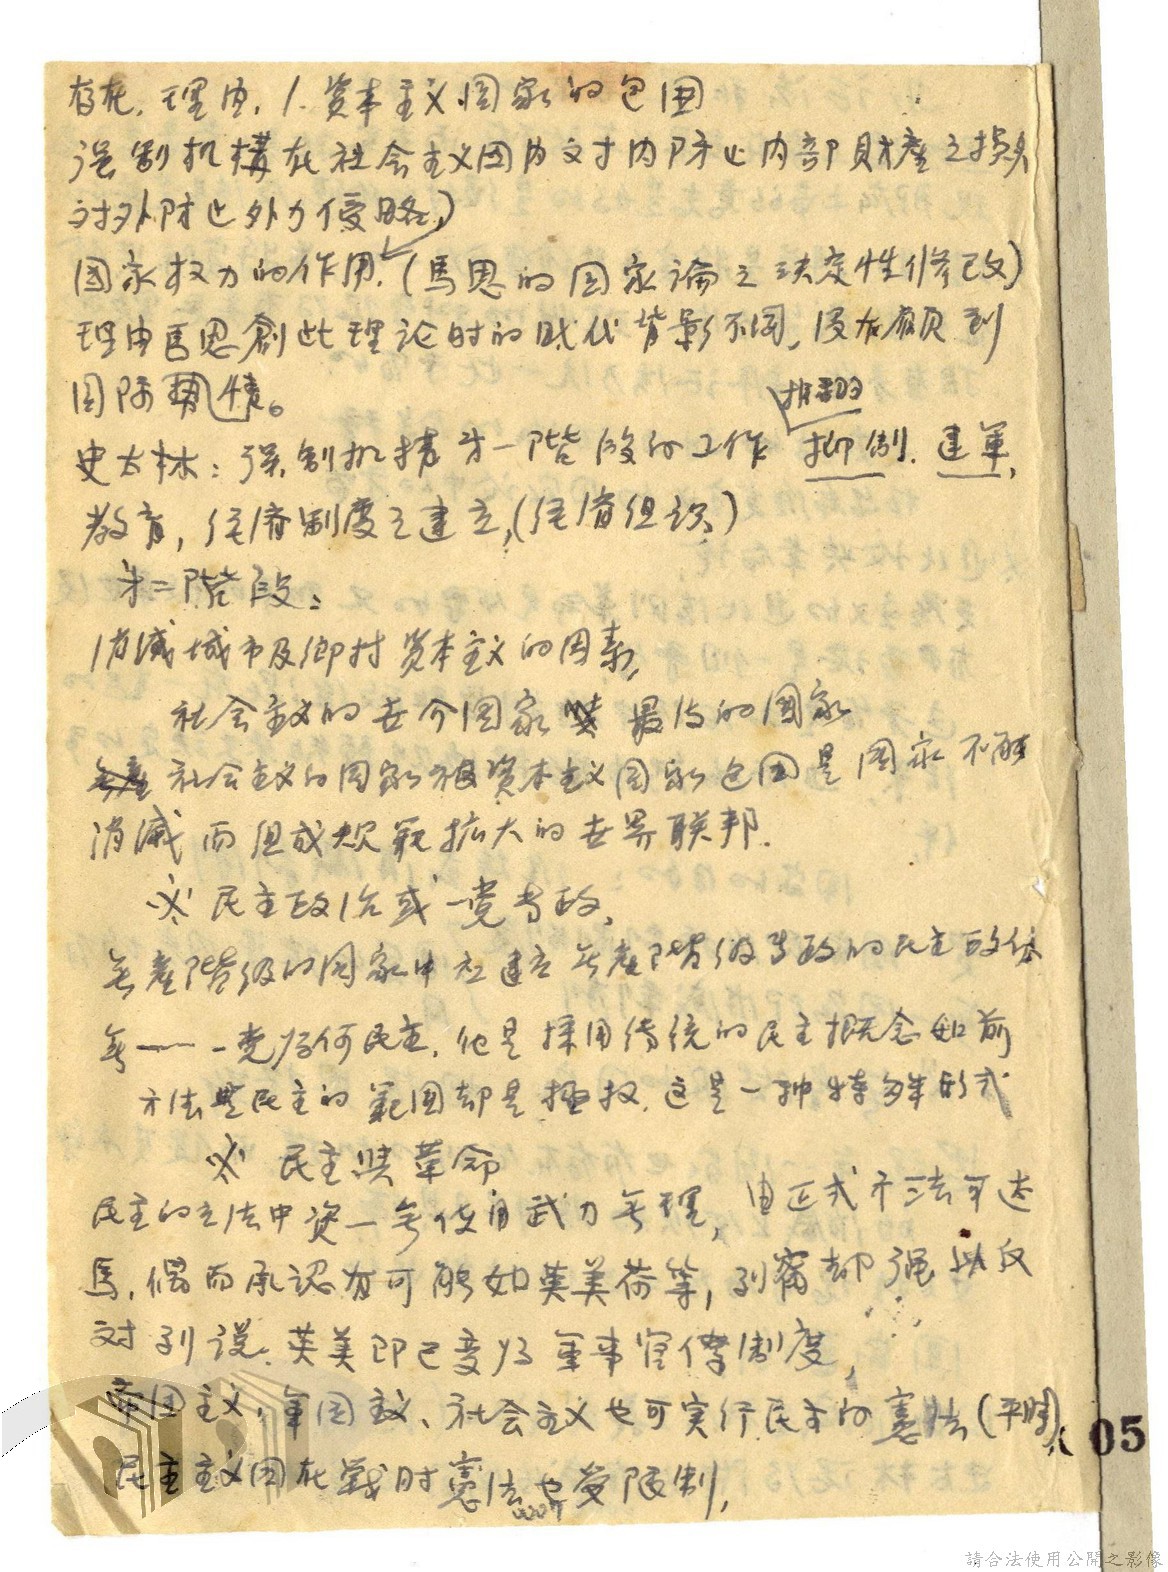 存在. 理由. 1. 資本主义国家的包囲
强制机構在社会主义国内对内防止内部財產之損失
对外防止外力侵略)
國家权力的作用. (馬恩的国家論之決定性修改)
理由馬恩創此理论时的时代背影不同, 没有顧到
国际情。
推翻
史太林: 强制机構才一階段的工作 抑制. 建軍,
教育, 经済制度之建立, (经濟组织)
才二階段:
消滅城市及鄉村資本主义的因素,
社会主义的世介國家 最后的國家
社会主义的国家被資本主义国家包囲是國家不能
消滅而组成規範拡大的世界联邦.
※ 民主政治或一党专政,
無產階級的国家中社建立無產階級专政的民主政体
一党为何民主, 他是採用傳统的民主概念如前
方法与民主的範囲却是極权. 这是一种特殊形式
※ 民主與革命
民主的立法中資一無使用武力無理, 由正式方法可达
馬, 偶而承認有可能如英美荷等, 列甯却强烈反
对列說. 英美即已变为軍事官僚制度,
帝国主义, 軍国主义、社会主义也可实行民主的憲法(平時)
民主主义国在戰时憲法也受限制,
0007
05
請合法使用公開之影像